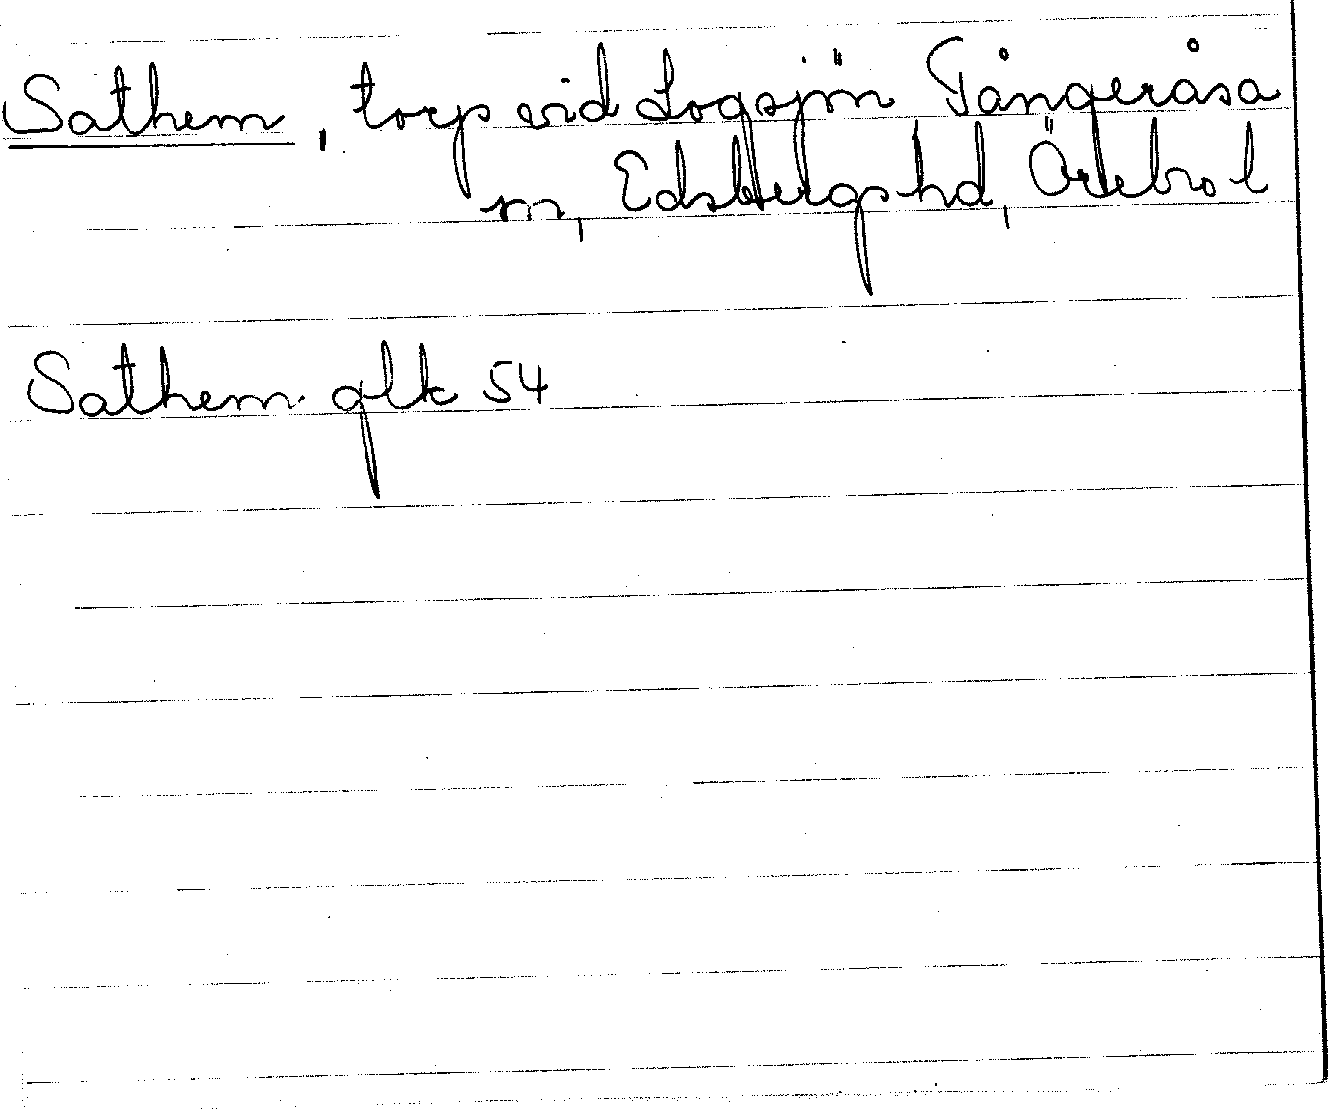 Sathem, torp vid Logsjön Tångeråsa
sn, Edsbergs hd, Örebro l
Sathem glk 54